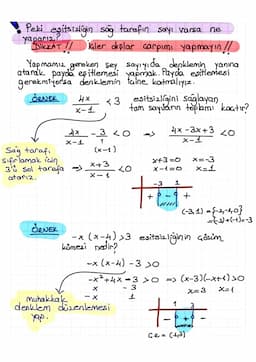 ! Peki eşitsizliğin sağ tarafın sayı varsa ne yaparız?
DİKKAT!! İçler dışlar çarpımı yapmayın!!
Yapmamız gereken şey sayıyıda denklemin yanına
atarak payda eşitlemesi yapmak. Payda eşitlemesi
gerekmiyorsa denklemin içine katmalıyız.
ÖRNEK 4x/x-1 < 3 eşitsizliğini sağlayan
tam sayıların toplamı kaçtır?
4x/x-1 - 3/1 < 0 ⇒ 4x-3x+3/x-1 < 0
(x-1)
Sağ tarafı
sıfırlamak için
3'ü sol tarafa
atarız.
x+3/x-1 < 0 ⇒ x+3=0 x=-3
x-1=0 x=1
-3 1
+ - +
(-3,1) = {-2,-1,0}
=(-2)+(-1)=-3
ÖRNEK
-x(x-4) > 3 eşitsizliğinin çözüm
kümesi nedir?
-x(x-4) -3 > 0
-x²+4x-3 > 0 ⇒ (x-3)(-x+1) > 0
x -3
-x 1
x=3 x=1
mutlaka
denklem düzenlemesi
yap.
1 3
- + -
ÇK = (1,3)